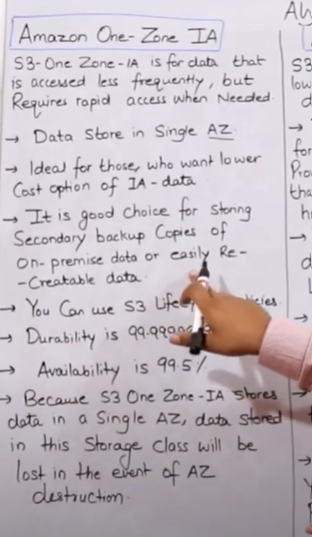 Amazon One-Zone IA
S3-One Zone-IA is for data that
is accessed less frequently, but
Requires rapid access when Needed.
→ Data Store in Single AZ.
→ Ideal for those, who want lower
Cost option of IA-data
→ It is good choice for storing
Secondary backup Copies of
On-premise data or easily Re-
-Creatable data.
→ You Can use S3
→ Durability is
→ Availability is 99.5%
→ Because S3 One Zone-IA Stores
data in a Single AZ, data stored
in this Storage Class will be
lost in the event of AZ
destruction.
S3
low